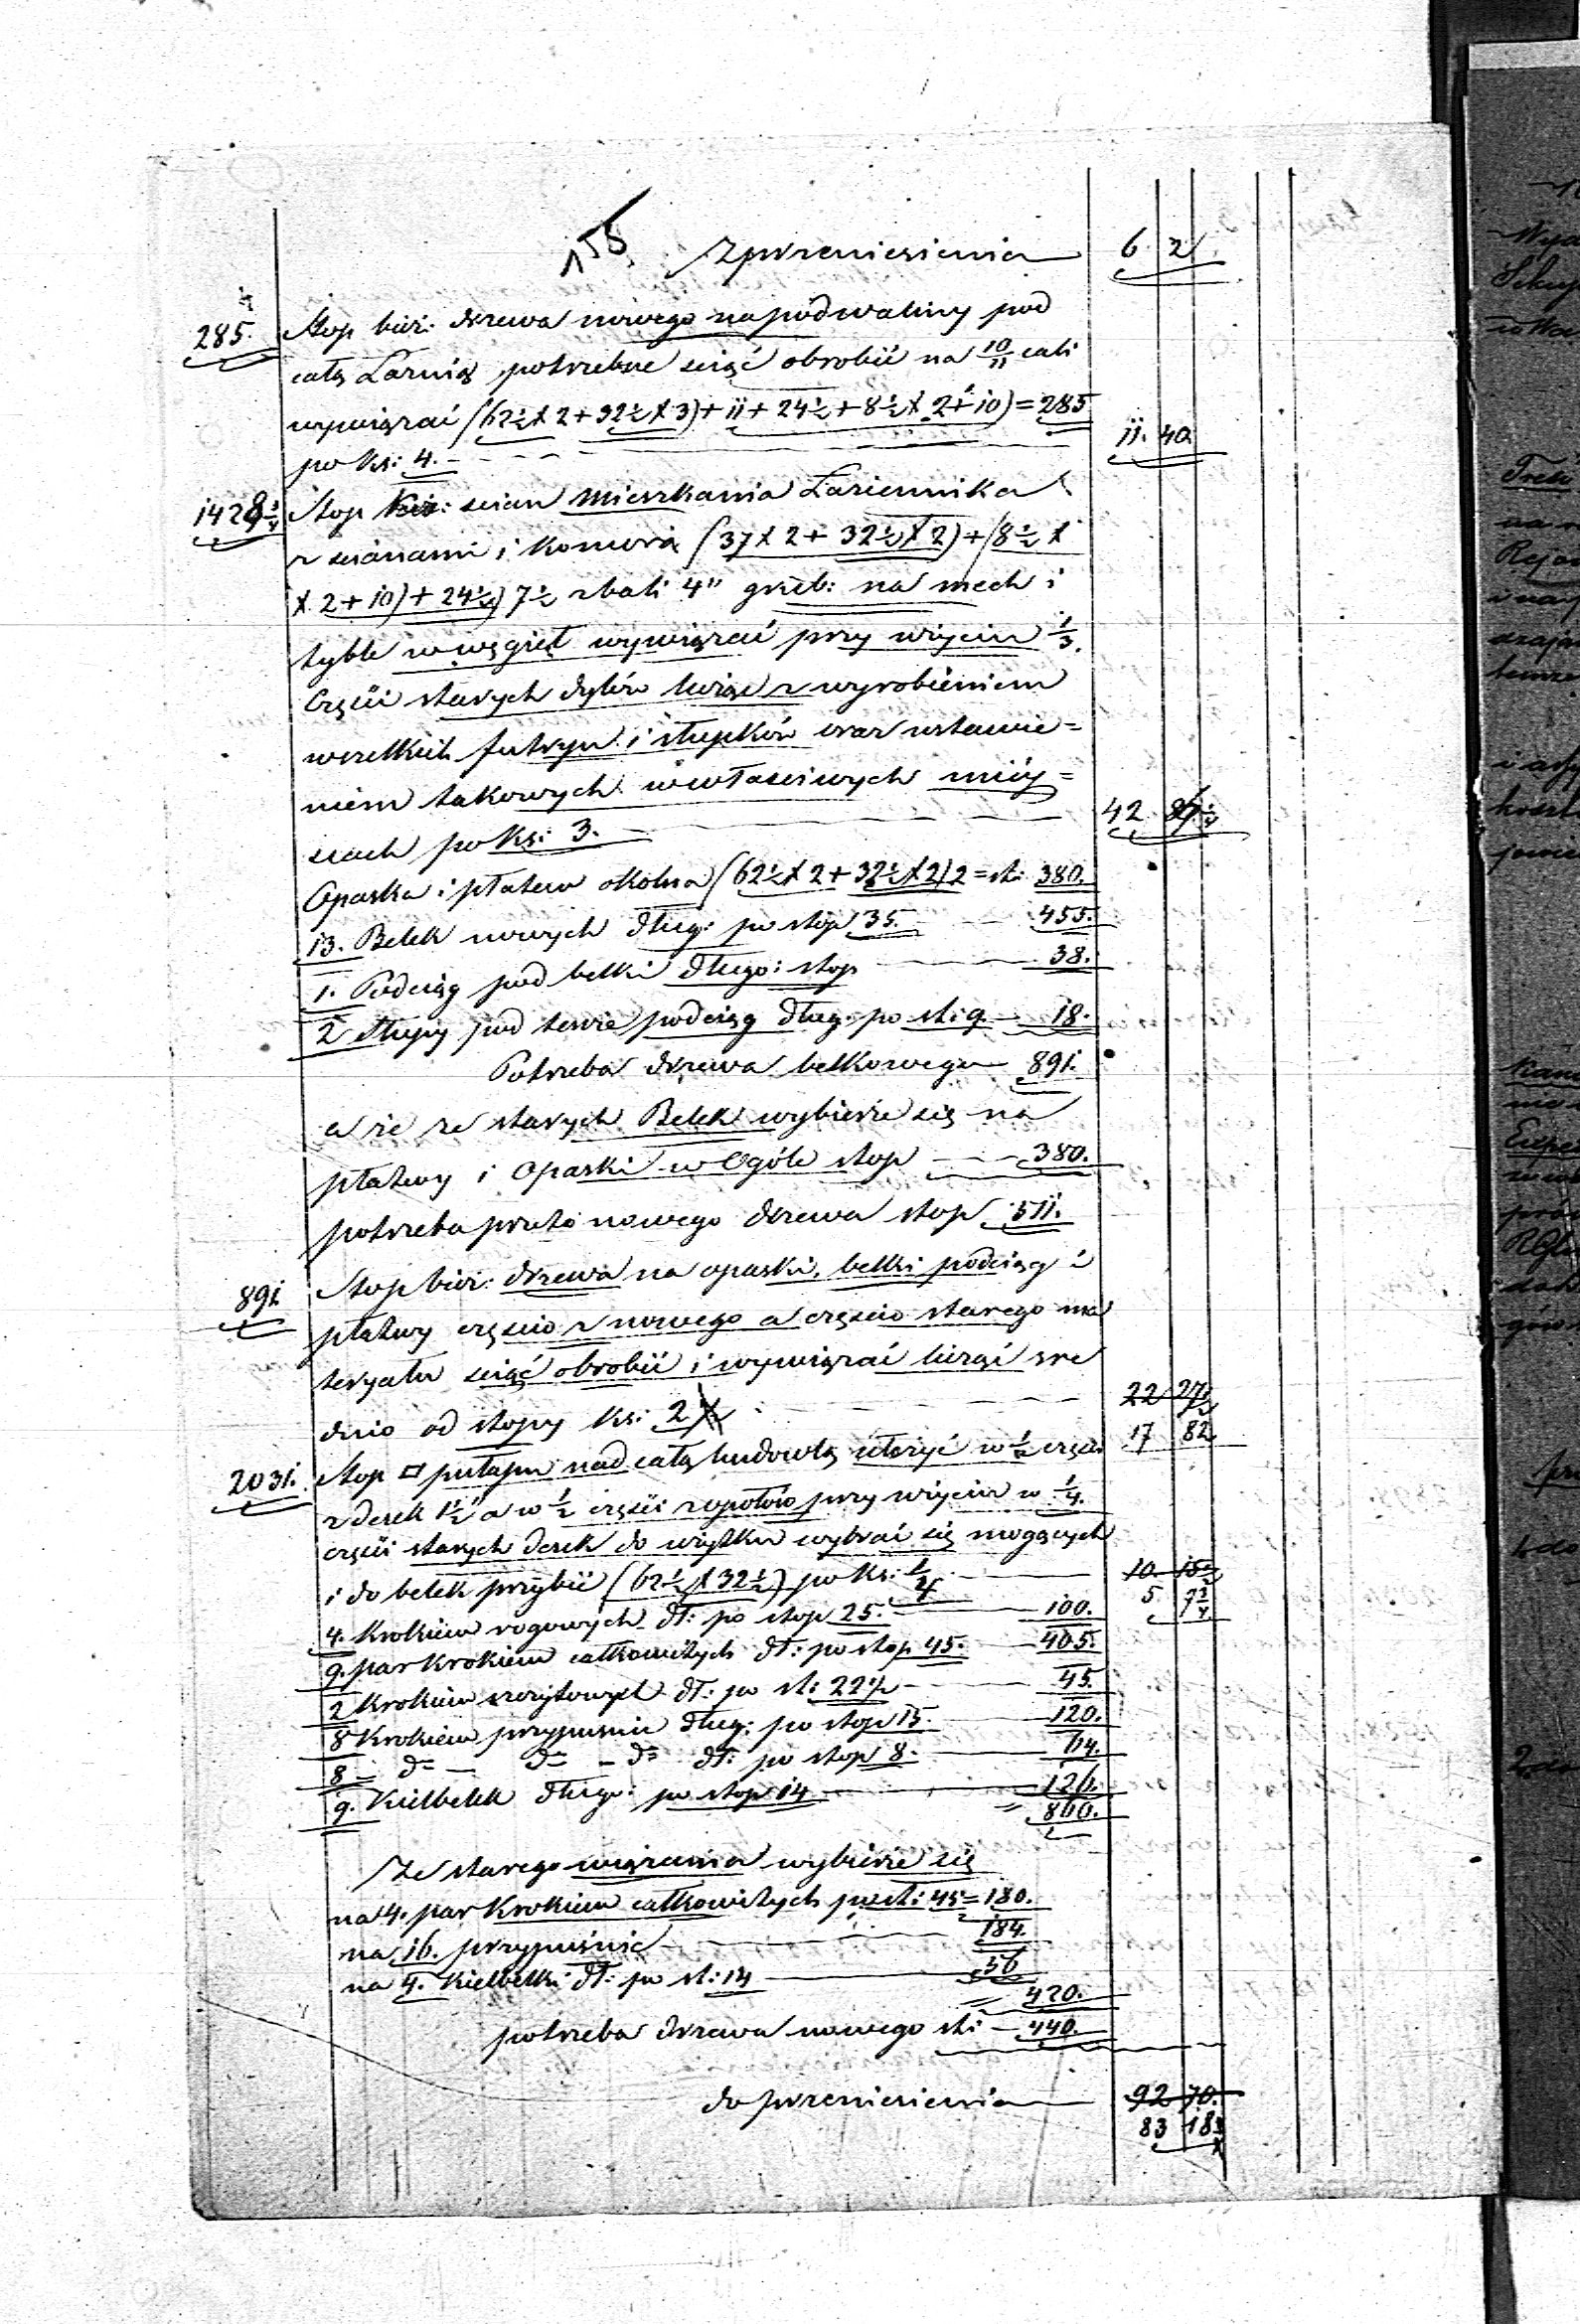 158
Zprzeniesienia 6 2
285. Stop bież: drzewa nowego na podwaliny pod
całą Łaźnią potrzebne ściąć obrobić na 10/11 cali
wywiązać (62½ X 2 + 32½ X 3) + 11 + 24½ + 8½ X 2 + 10) = 285
po ks: 4. 11. 40
1428¾ Stop kw: ścian Mieszkania Łaziennika
z sieniami i Komorą (37 X 2 + 32½ X 2) + (8½ X
X 2 + 10) + 24½) 7½ z bali 4" grub: na mech i
tyble w węgieł wywiązać przy użyciu 1/3.
części starych dylów licząc z wyrobieniem
wszelkich futryn i słupków oraz ustawie=
niem takowych w właściwych miéy=
scach po ks: 3. 42
Opaska i płatew okolna (62½ X 2 + 32½ X 2) 2 = st: 380.
13. Belek nowych dług: po stóp 35. 455.
1. Podciąg pod belki długo: stóp 38.
2 Słupy pod tenże podciąg dług. po st: 9 18.
Potrzeba drzewa belkowego 891.
a że ze starych Belek wybierze się na
płatwy i Opaski w Ogóle stóp 380.
potrzeba przeto nowego drzewa stóp 511.
891 Stop bież: drzewa na opaski, belki podciągi i
płatwy częścio z nowego a częścio starego ma
teryału ściąć obrobić i wywiązać licząc śre
dnio od stopy ks: 2 22 27½
17 82
2031. Stop □ pułapu nad całą budowlą ułożyć w ½ części
z desek 1½" a w ½ części z opołów przy użyciu w ¼.
części starych desek do użytku wybrać się mogących
i do belek przybić (62½ X 32½) po ks: ½ 10 15½
4. Krokiew rogowych dł: po stóp 25. 100. 5 7¾
9. par Krokiew całkowitych dł: po stop 45. 405.
2 Krokiew szczytowych dł: po st: 22½ 45.
8 Krokiew przypustnic dług: po stóp 15. 120.
8 – dº – dº – dº dł: po stóp 8. 64.
9. Kielbelek długo: po stóp 14 126.
860.
Ze starego wiązania wybierze się
na 4. par Krokiew całkowitych po st: 45 = 180.
na 16. przypustnic 184.
na 4. Kielbelki dł: po st: 14 56
420.
potrzeba drzewa nowego st: 440.
do przeniesienia 92 70.
83 18¾